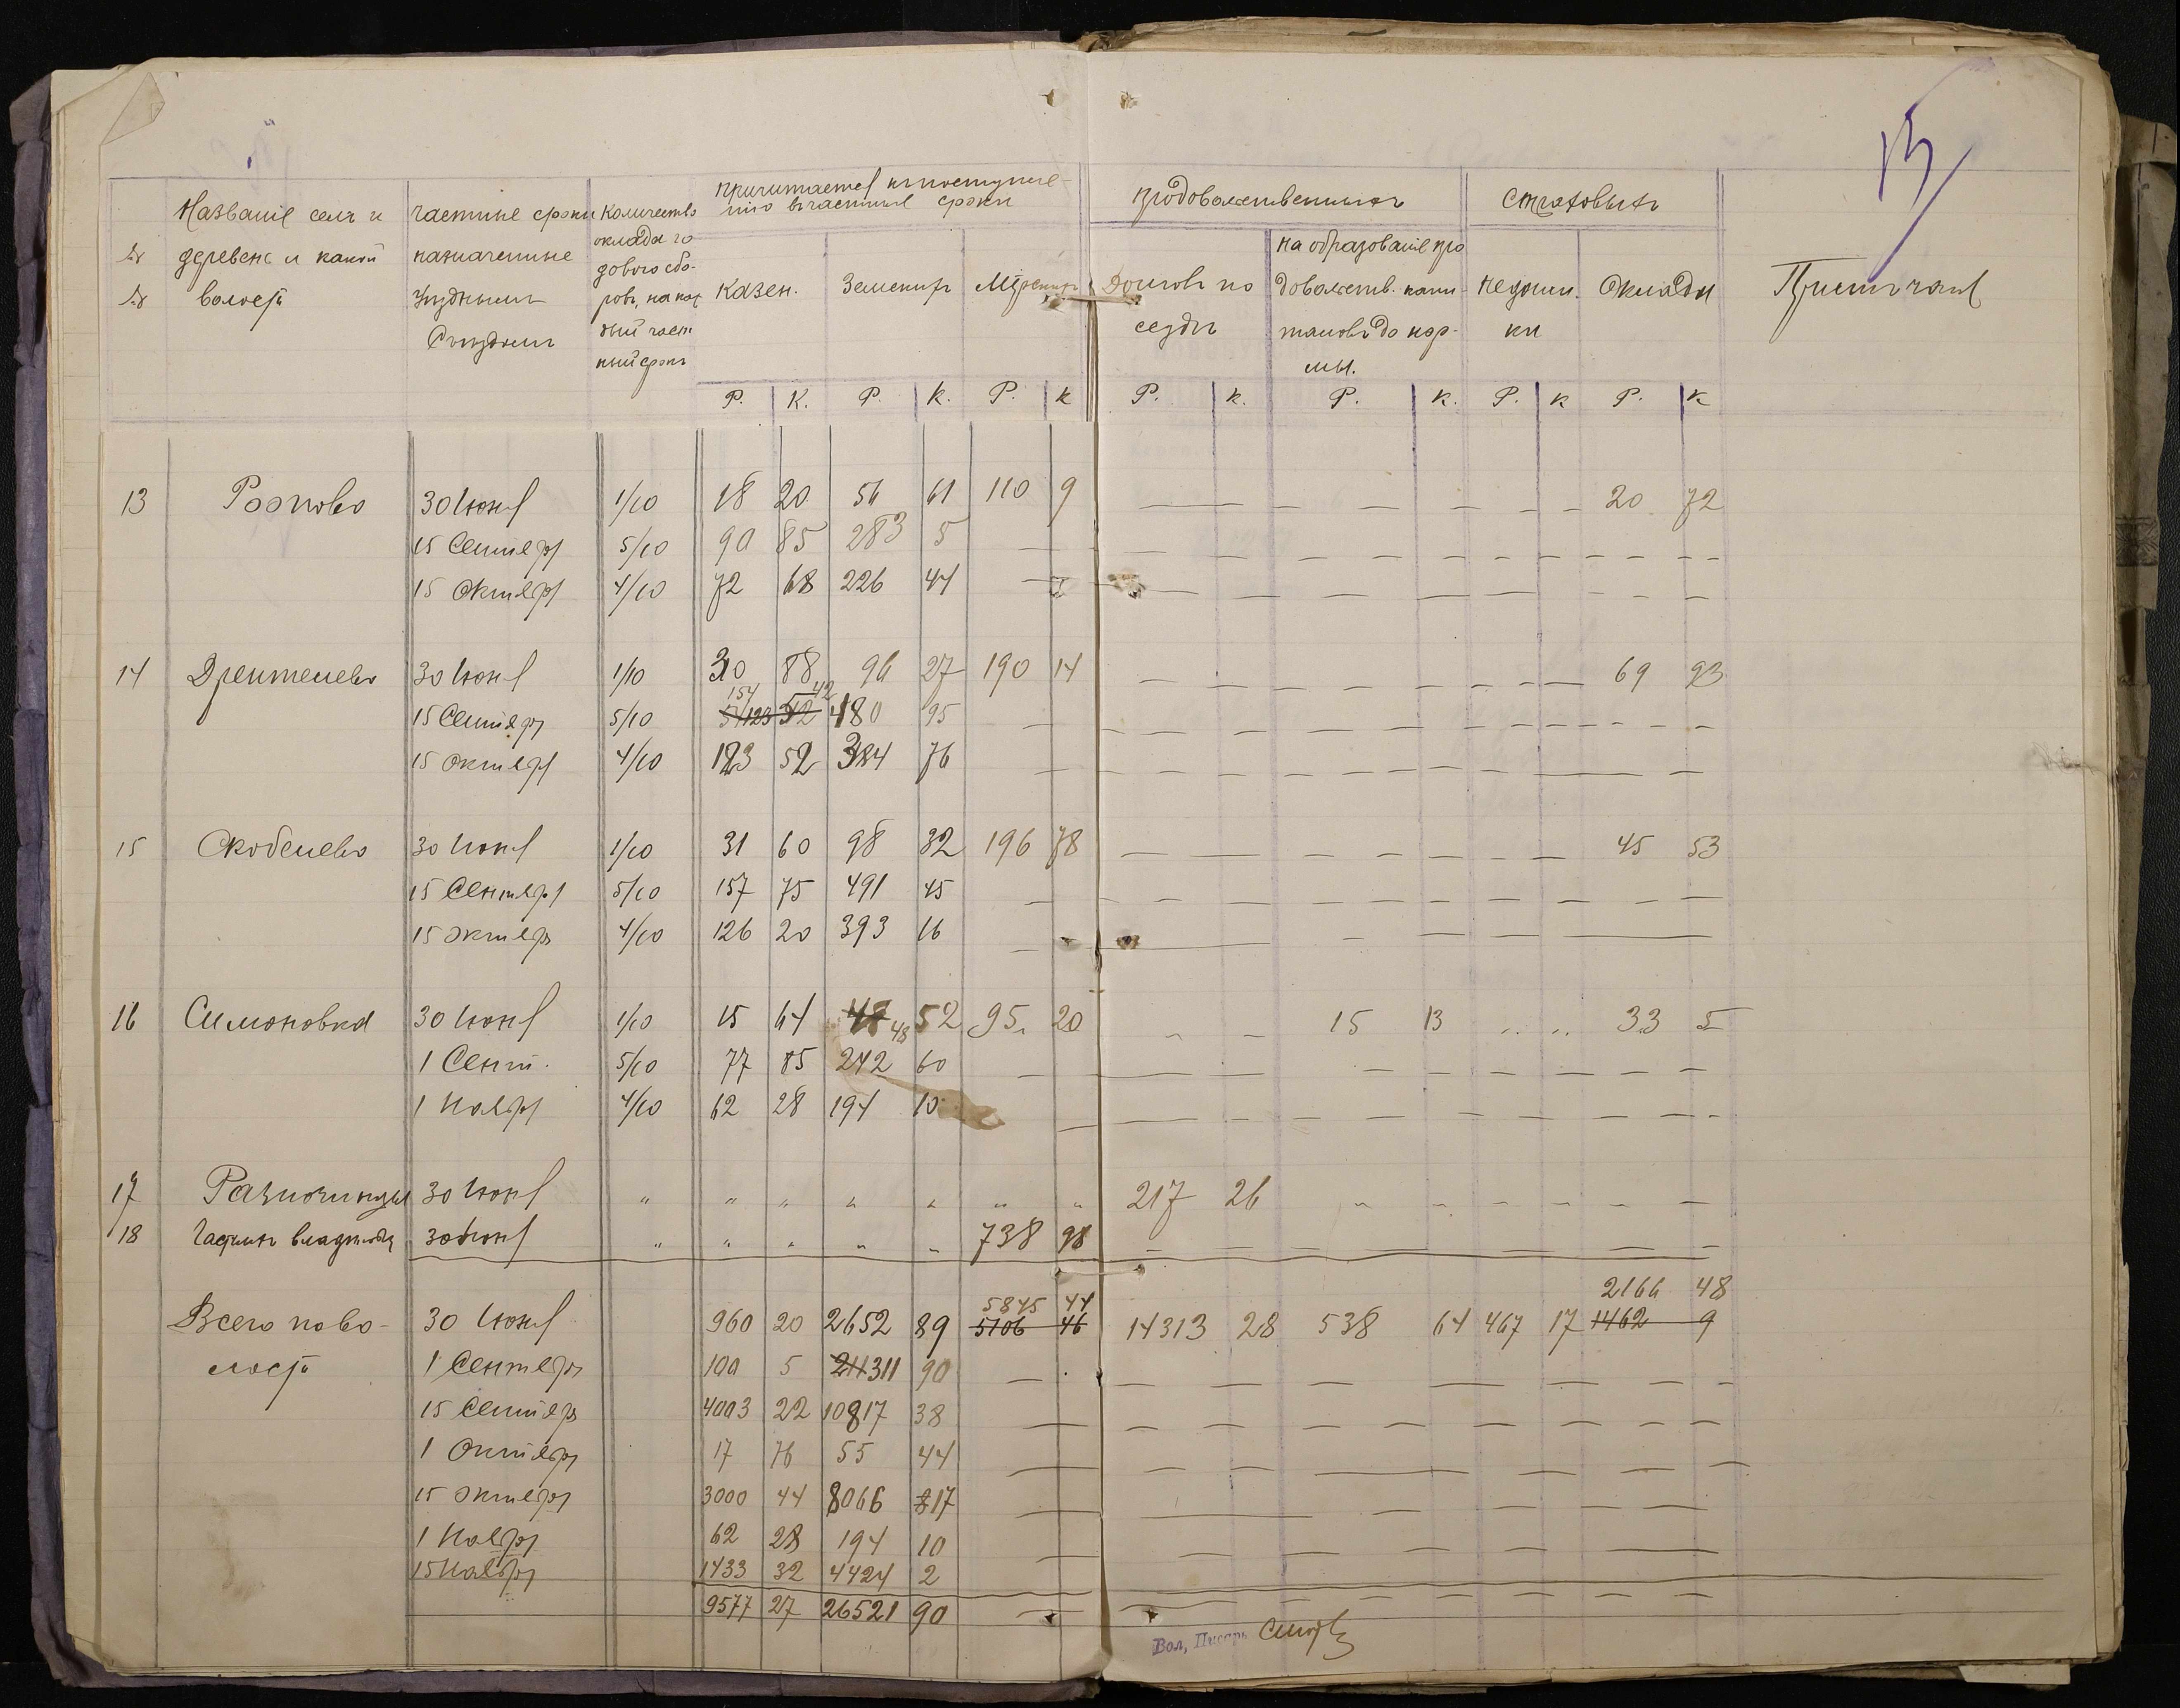 13
№ №
Названіе селъ и деревень и какой волости
частные сроки назначенные Уѣзднымъ Съѣздомъ
Количество оклада годового сбора, на каждый частный срокъ
причитается къ поступленію въ частные сроки
Казен. Земскихъ Мірскихъ
Продовольственныхъ
Долговъ по ссудѣ
на образованіе продовольств. капиталовъ до нормы.
Страховыхъ
недоимки Оклады
Примѣчаніе
Р. К. Р. К. Р. К Р. К. Р. К. Р. К Р. К
13 30 Іюня 1/10 18 20 56 61 110 9 — — — — — — 20 72
15 Сентября 5/10 90 85 283 5 — — — — — — — — — —
15 Октября 4/10 72 68 226 44 — — — — — — — — — —
14 Дрентелево 30 Іюня 1/10 30 88 96 27 190 14 — — — — — — 69 93
15 Сентября 5/10 154 42 480 95 — — — — — — — — —
15 Октября 4/10 123 52 384 76 — — — — — — — — —
15 Скобелево 30 Іюня 1/10 31 60 98 32 196 78 — — — — — — 45 53
15 Сентября 5/10 157 75 491 45 — — — — — — — — —
15 Октября 4/10 126 20 393 16 — — — — — — —
16 Симоновка 30 Іюня 1/10 15 64 48 52 95 20 — — 15 13 „ „ 33 5
1 Сент. 5/10 77 85 242 60 — — — — — — — — —
1 Ноября 4/10 62 28 194 10 — — — — — — — — —
17 Разночинцы 30 Іюня „ „ „ „ „ „ „ 217 26 — — — — — —
18 Частныхъ владѣльц 30 Іюня „ „ „ „ „ 738 98 — — — — — — — —
2166 48
5845 44
Всего по волости 30 Іюня 960 20 2652 89 5106 46 14313 28 538 64 467 17 1462 9
1 Сентября 100 5 311 90 — — — — — — — — —
15 Сентября 4003 22 10817 38 — — — — — — — — —
1 Октября 17 76 55 44 — — — — — — — —
15 Октября 3000 44 8066 17 — — — — — — —
1 Ноября 62 28 194 10 — — — — — — —
15 Ноября 1433 32 4424 2
9577 27 26521 90 — — — — — — — — —
Вол, Писарь